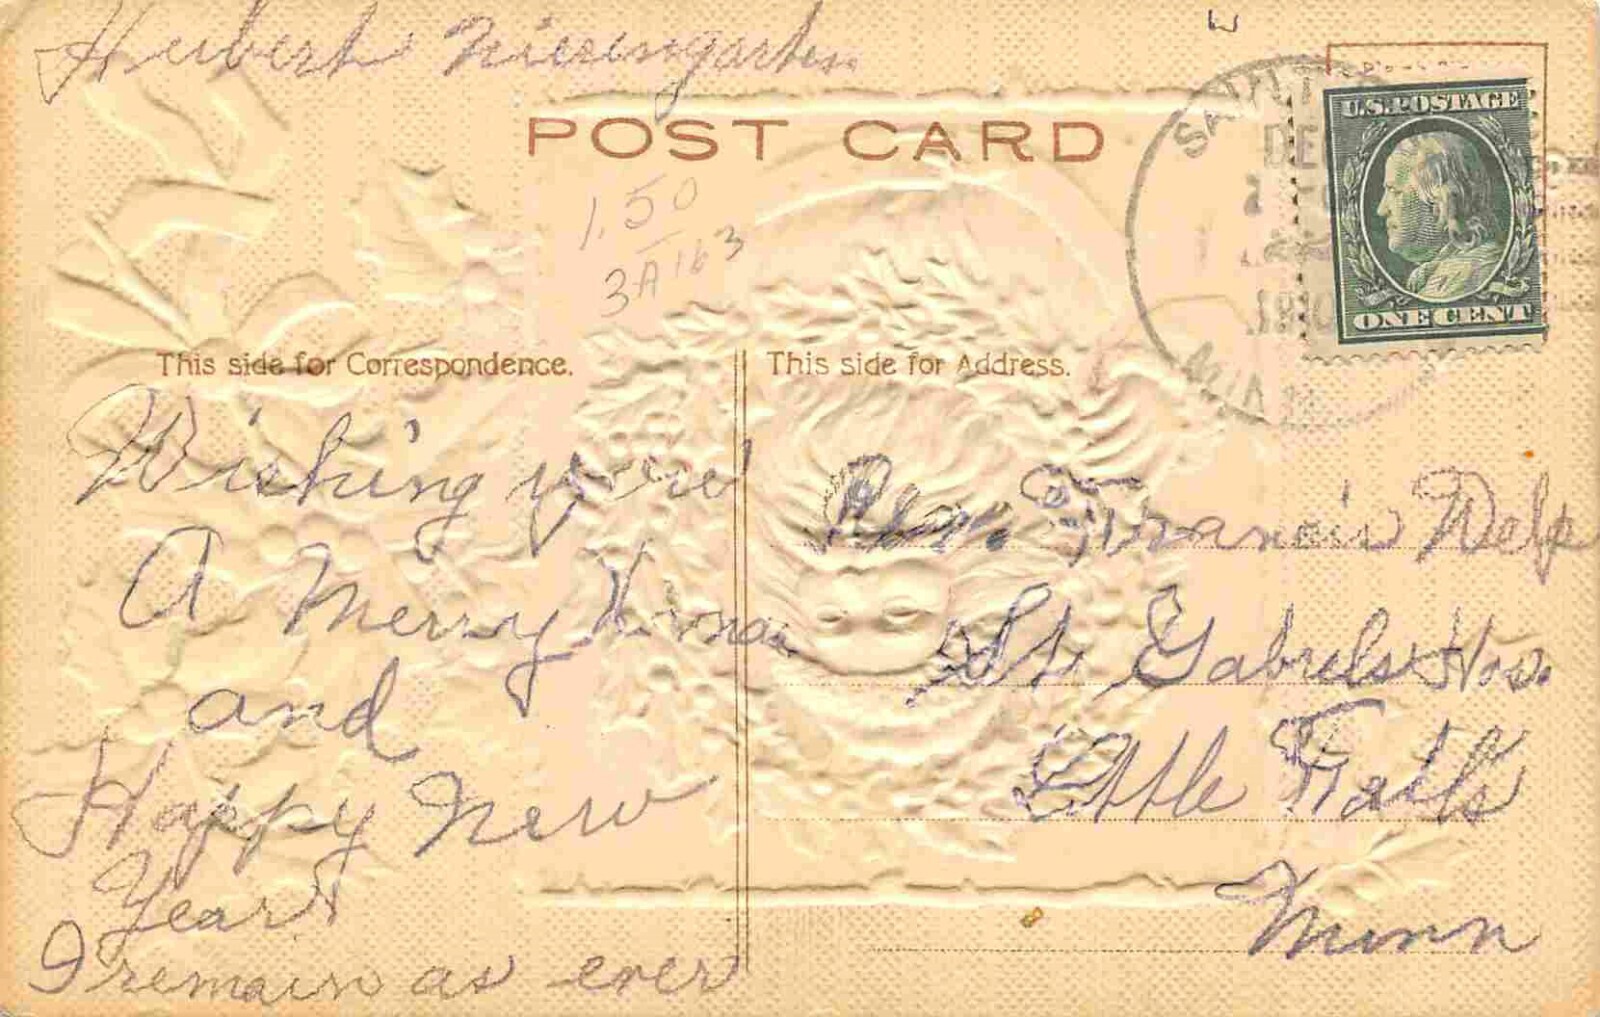 Herbert Nierengarten
POST CARD
1.50
3A163
SAINT
DE
1910
MINN
U.S. POSTAGE
ONE CENT
This side for Correspondence.
Wishing you
A Merry Xmas
and
Happy New
Year
I remain as ever
This side for Address.
Rev. Francis Welp
St Gabriels Hos.
Little Falls
Minn